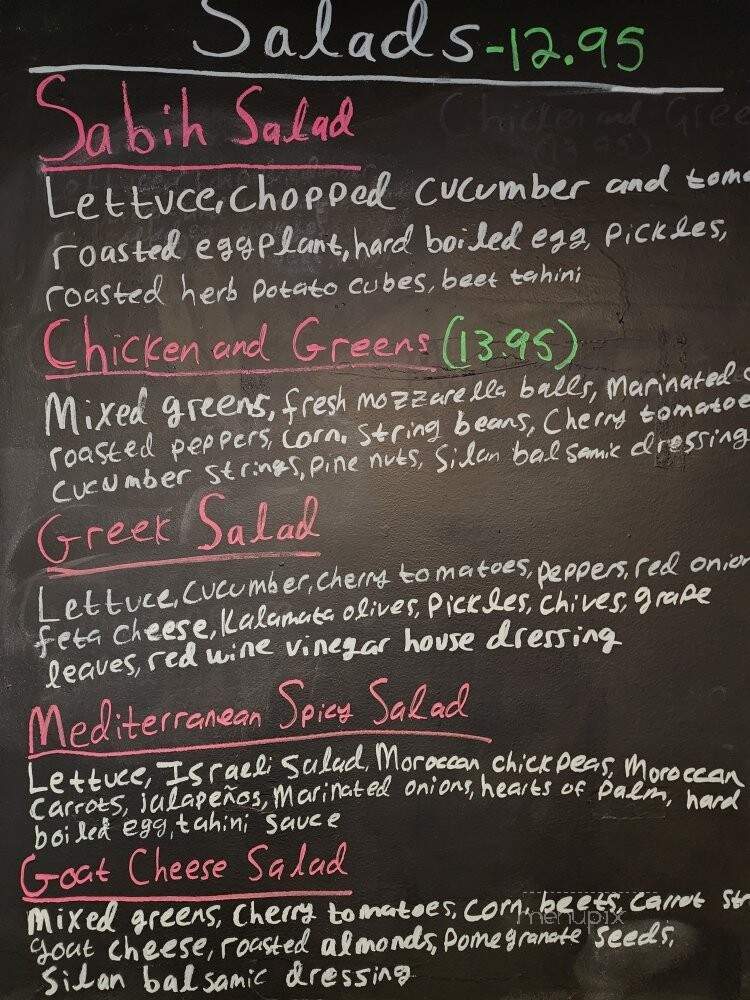 Salads -12.95
Chicken and Gree
(13.95)
Sabih Salad
Lettuce, chopped cucumber and toma
roasted eggplant, hard boiled egg, pickles,
roasted herb potato cubes, beet tahini
Chicken and Greens (13.95)
Mixed greens, fresh mozzarella balls, Marinated
roasted peppers, corn, string beans, Cherry tomatoe
cucumber strings, pine nuts, Silan balsamic dressing
Greek Salad
Lettuce, cucumber, cherry tomatoes, peppers, red onion
feta cheese, Kalamata olives, pickles, chives, grape
leaves, red wine vinegar house dressing
Mediterranean Spicy Salad
Lettuce, Israeli Salad, Moroccan chickpeas, Moroccan
carrots, jalapeños, Marinated onions, hearts of palm, hard
boiled egg, tahini sauce
Goat Cheese Salad
Mixed greens, Cherry tomatoes, corn, beets, carrot str
goat cheese, roasted almonds, pomegranate seeds,
Silan balsamic dressing
menupix